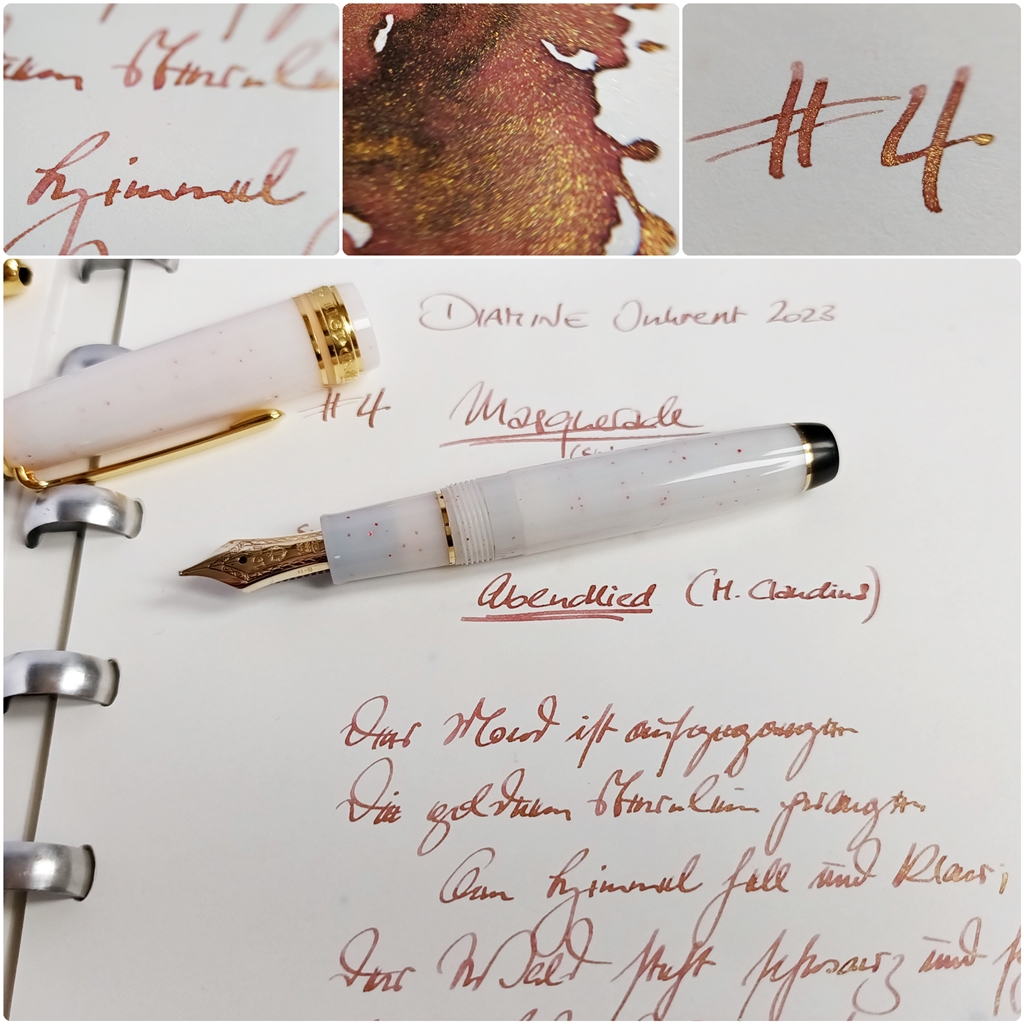 himmel
#4
DIAMINE Inkvent 2023
#4 Masquerade
Abendlied (M. Claudius)
Der Mond ist aufgegangen
Die goldnen Sternlein prangen
Am Himmel hell und klar;
Der Wald steht schwarz und